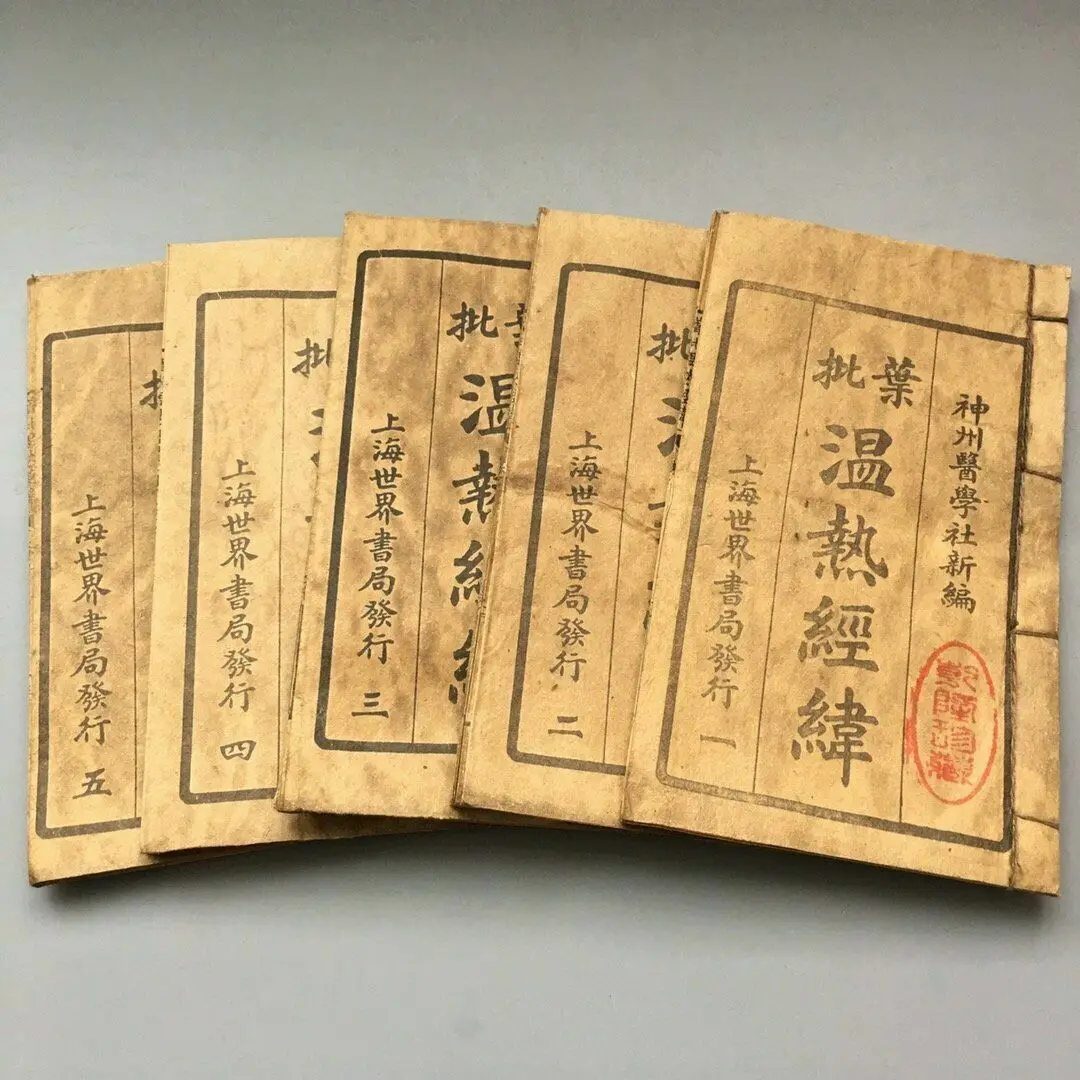 神州醫學社新編
葉批
温熱經緯
上海世界書局發行 一
批
上海世界書局發行 二
葉批
温熱經緯
上海世界書局發行 三
批
上海世界書局發行 四
上海世界書局發行 五